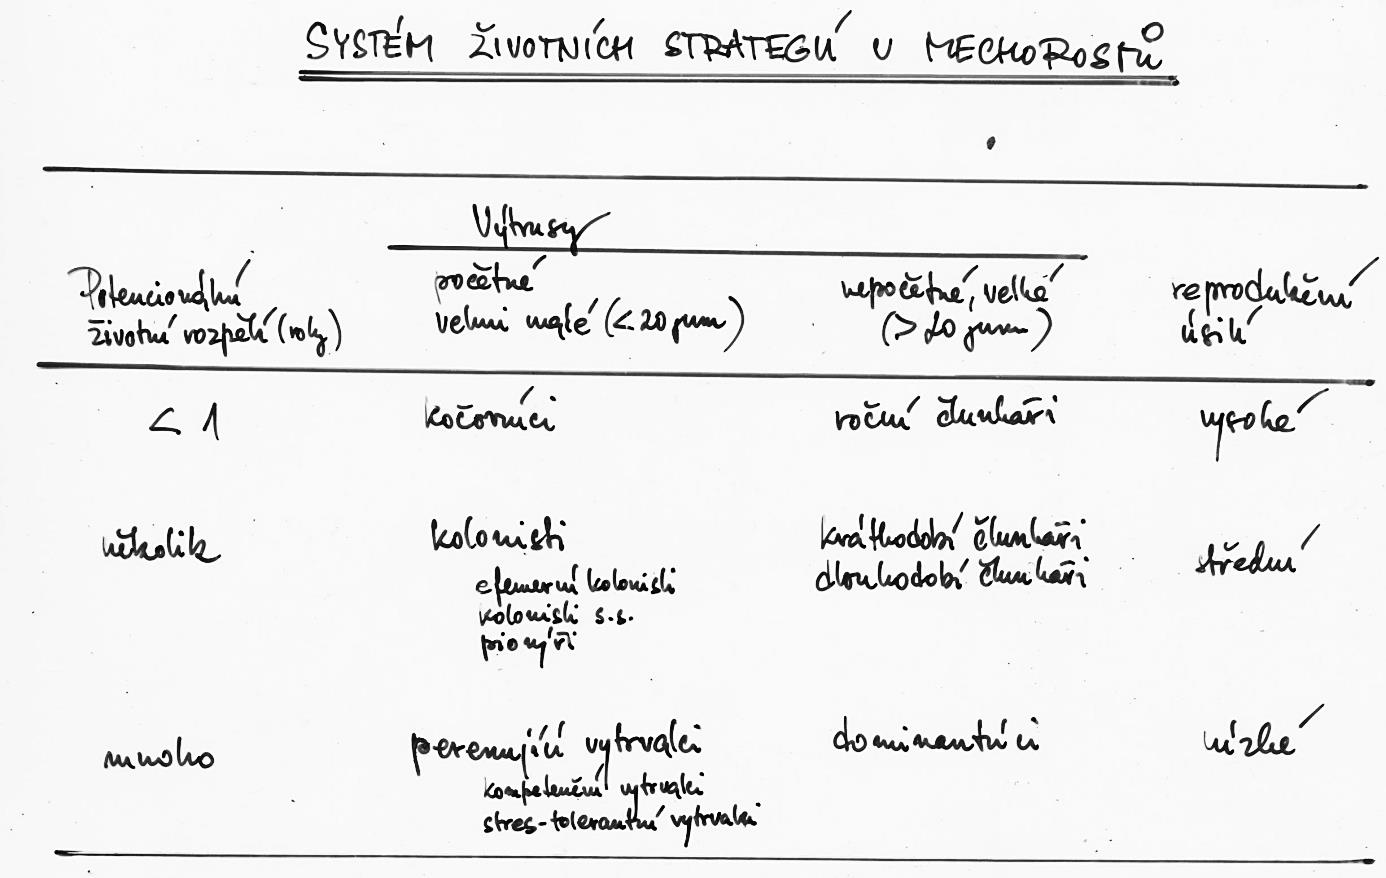 SYSTÉM ŽIVOTNÍCH STRATEGIÍ U MECHOROSTŮ
Výtrusy
Potencionální
životní rozpětí (roky)
početné
velmi malé (< 20 µm)
nepočetné, velké
(> 20 µm)
reprodukční
úsilí
< 1
kočovníci
roční člunkaři
vysoké
několik
kolonisti
efemerní kolonisti
kolonisti s.s.
pionýři
krátkodobí člunkaři
dlouhodobí člunkaři
střední
mnoho
perenující vytrvalci
kompetenční vytrvalci
stres-tolerantní vytrvalci
dominantníci
nízké